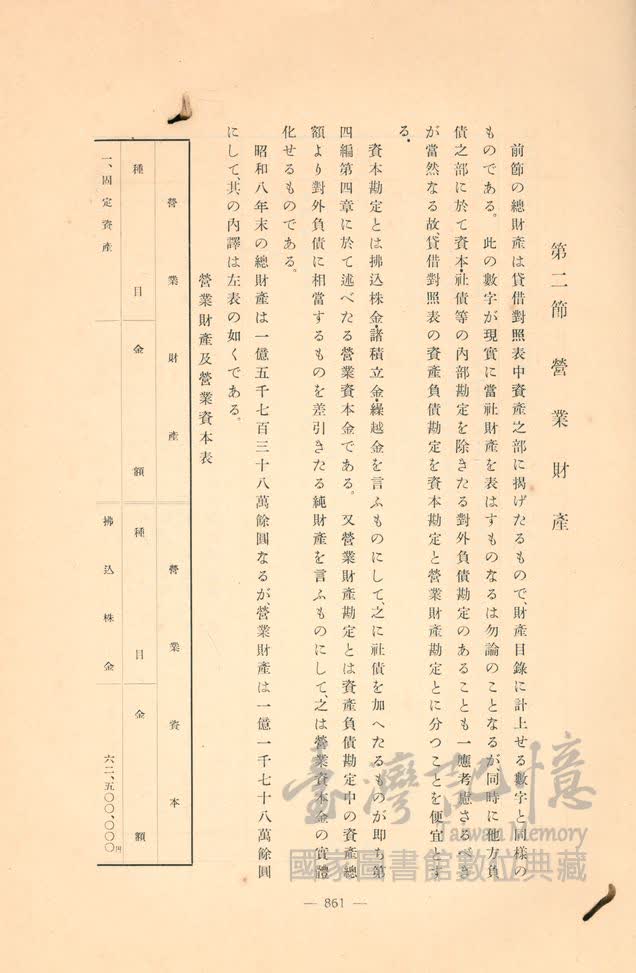 第二節　營業財產
前節の總財產は貸借對照表中資產之部に揭げたるもので、財產目錄に計上せる數字と同樣の
ものである。此の數字が現實に當社財產を表はすものなるは勿論のことなるが、同時に他方負
債之部に於て資本・社債等の內部勘定を除きたる對外負債勘定のあることも一應考慮さるべき
が當然なる故、貸借對照表の資產負債勘定を資本勘定と營業財產勘定とに分つことを便宜とす
る。
資本勘定とは拂込株金・諸積立金・繰越金を言ふものにして、之に社債を加へたるものが卽ち第
四編第四章に於て述べたる營業資本金である。又營業財產勘定とは資產負債勘定中の資產總
額より對外負債に相當するものを差引きたる純財產を言ふものにして、之は營業資本金の實體
化せるものである。
昭和八年末の總財產は一億五千七百三十八萬餘圓なるが、營業財產は一億一千七十八萬餘圓
にして、其の內譯は左表の如くである。
營業財產及營業資本表
營業財產
營業資本
種目
金額
種目
金額
一、固定資產
拂込株金
六二、五〇〇、〇〇〇円
臺灣記憶
Taiwan Memory
國家圖書館數位典藏
— 861 —